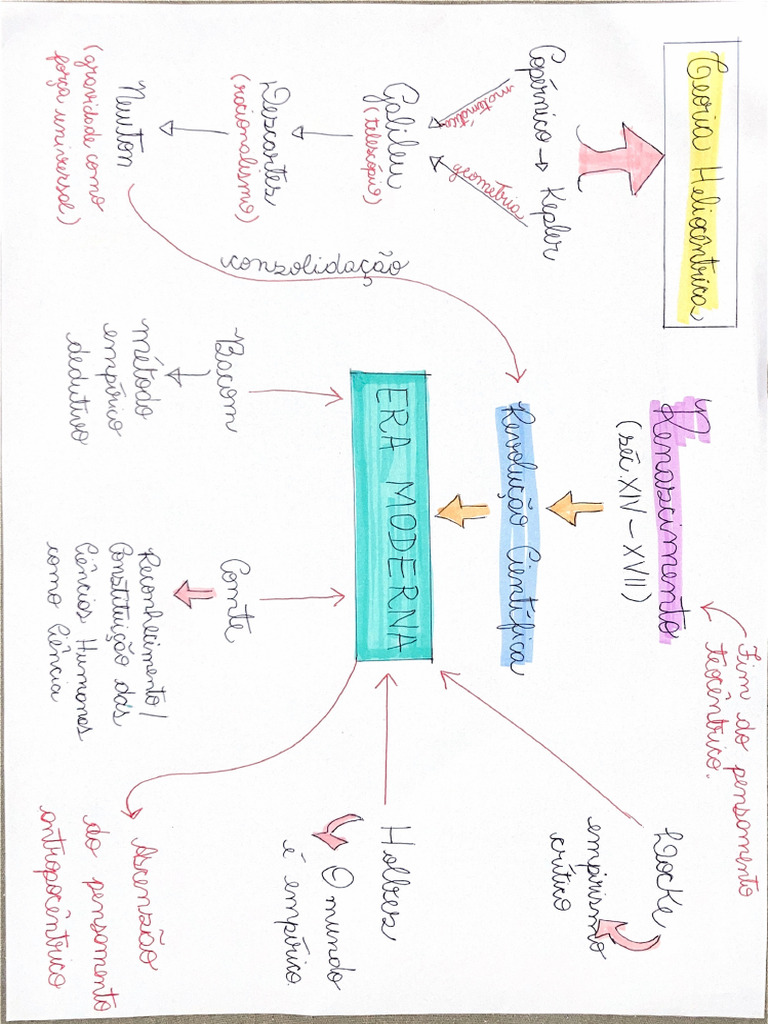 Teoria Heliocêntrica
Copérnico → Kepler
matemática
geometria
Galileu
(telescópio)
Descartes
(racionalismo)
Newton
(gravidade como
força universal)
consolidação
Renascimento
(séc XIV - XVII)
Fim do pensamento
teocêntrico.
Revolução Científica
ERA MODERNA
Bacom
método
empírico
dedutivo
Comte
Reconhecimento/
Constituição das
Ciências Humanas
como Ciência
Locke
empirismo
crítico
Hobbes
O mundo
é empírico.
Ascensão
do pensamento
antropocêntrico